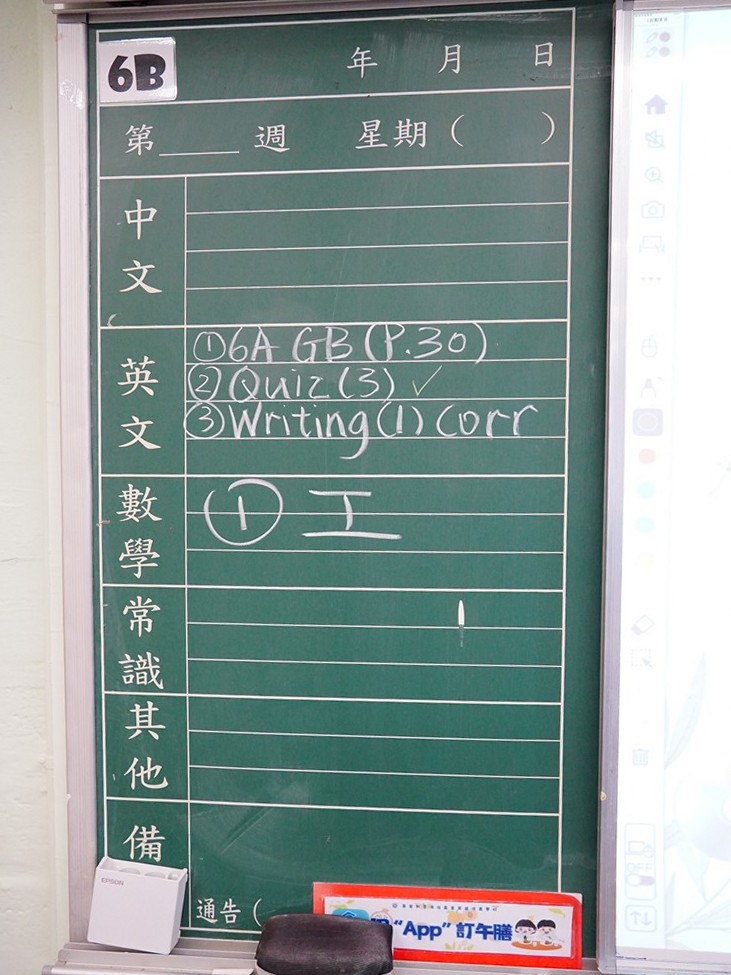 6B
年 月 日
第____週 星期( )
中文
英文
①6A GB(P.30)
②Quiz(3) ✓
③Writing(1) corr
數學
① 工
常識
其他
備
EPSON
通告(
"App"訂午膳
OFF